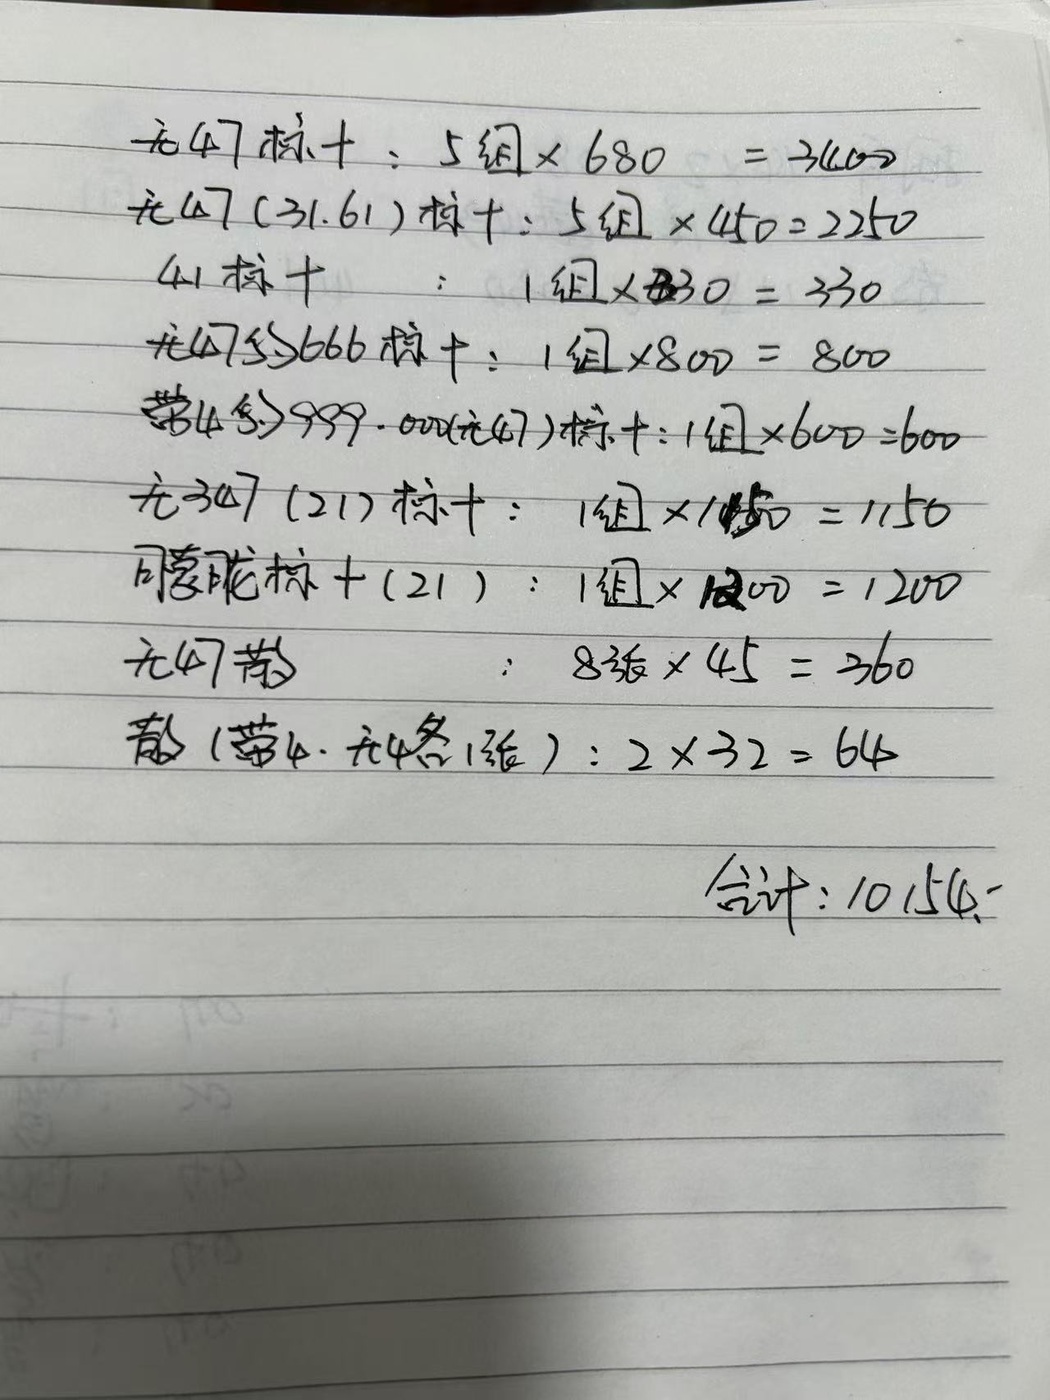 无47标十：5组×680 =3400
无47(31.61)标十：5组×450=2250
41标十：1组×330=330
无47约666标十：1组×800=800
带4约999.000(无47)标十：1组×600=600
无347(21)标十：1组×1150=1150
朦胧标十(21)：1组×1200=1200
无47散：8张×45=360
散(带4.无4各1张)：2×32=64
合计：10154.-